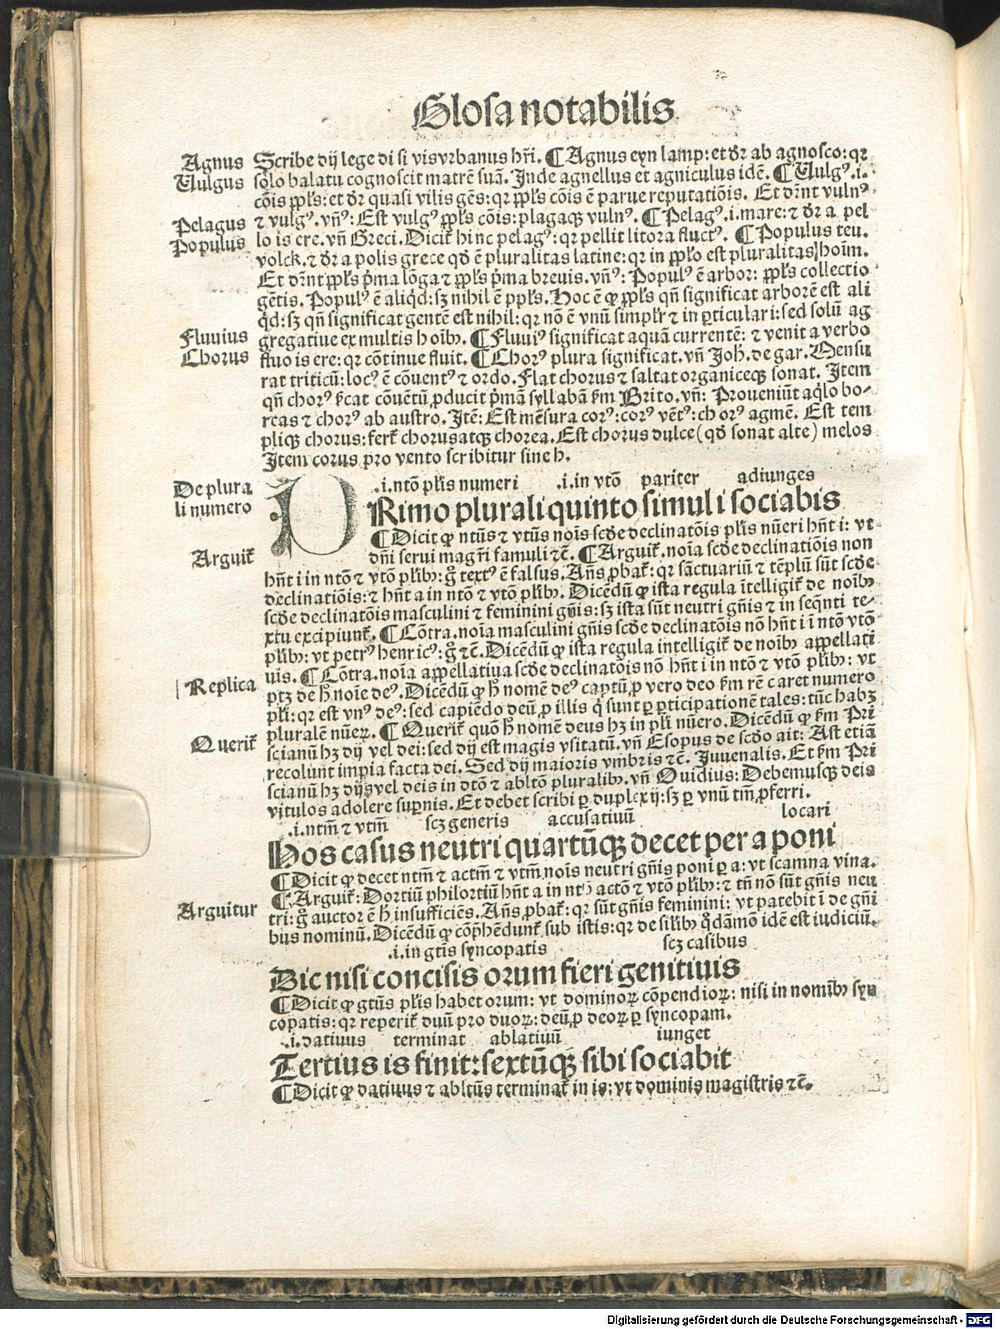 Glosa notabilis
Agnus Scribe dij lege di si vis vrbanus hr̄i. ¶ Agnus eyn lamp: et dr̄ ab agnosco: qr
Uulgus solo balatu cognoscit matrē suā. Inde agnellus et agniculus idē. ¶ Uulgꝰ .i.
cōis ppl̄s: et dr̄ quasi vilis gēs: qr ppl̄s cōis ē parue reputatiōis. Et dr̄nt vulnꝰ
Pelagus ⁊ vulgꝰ. vn̄ꝰ: Est vulgꝰ ppl̄s cōis: plagaqꝫ vulnꝰ. ¶ Pelagꝰ .i. mare: ⁊ dr̄ a pel
Populus lo is ere. vn̄ Greci. Dicit̄ hinc pelagꝰ: qr pellit litora fluctꝰ. ¶ Populus teu.
volck. ⁊ dr̄ a polis grece qd̄ ē pluralitas latine: qr in ppl̄o est pluralitas hoīm.
Et dr̄nt ppl̄s p̄ma lōga ⁊ ppl̄s p̄ma brevis. vn̄ꝰ: Populꝰ ē arbor: ppl̄s collectio
gētis. Populꝰ ē aliqd̄: sꝫ nihil ē ppl̄s. Hoc ē ꝙ ppl̄s qn̄ significat arborē est ali
qd̄: sꝫ qn̄ significat gentē est nihil: qr nō ē vnū simplr̄ ⁊ in ꝑticulari: sed solū ag
Fluvius gregative ex multis hoībꝰ. ¶ Fluuiꝰ significat aquā currentē: ⁊ venit a verbo
Chorus fluo is ere: qr cōtinue fluit. ¶ Chorꝰ plura significat. vn̄ Joh. de gar. Mensu
rat triticū: locꝰ ē cōuentꝰ ⁊ ordo. Flat chorus ⁊ saltat organiceqꝫ sonat. Item
qn̄ chorꝰ ſic̄at cōuētū, ꝓducit p̄mā syllabā ſm Brito. vn̄: Proueniūt aq̄lo bo-
reas ⁊ chorꝰ ab austro. Itē: Est mēsura corꝰ: corꝰ vētꝰ: chorꝰ agmē. Est tem
pliqꝫ chorus: fert̄ chorusatqꝫ chorea. Est chorus dulce (qd̄ sonat alte) melos
Item corus pro vento scribitur sine h.
De plura
li numero
.i. ntō pl̄is numeri .i. in vtō pariter adiunges
PRimo plurali quinto simul i sociabis
¶ Dicit ꝙ ntūs ⁊ vtūs noīs scd̄e declinatōis pl̄is nūeri hn̄t i: vt
Arguit̄ dn̄i serui magr̄i famuli ⁊c̄. ¶ Arguit̄. noīa scd̄e declinatiōis non
hn̄t i in ntō ⁊ vtō pl̄ibꝰ: g̊ textꝰ ē falsus. An̄s ꝓbat̄: qr sāctuariū ⁊ tēplū sūt scd̄e
declinatiōis: ⁊ hn̄t a in ntō ⁊ vtō pl̄ibꝰ. Dicēdū ꝙ ista regula ītelligit̄ de noībꝰ
scd̄e declinatōis masculini ⁊ feminini gn̄is: sꝫ ista sūt neutri gn̄is ⁊ in seq̄nti te-
xtu excipiunt̄. ¶ Cōtra. noīa masculini gn̄is scd̄e declinatōis nō hn̄t i ī ntō vtō
pl̄ibꝰ: vt petrꝰ henricꝰ: g̊ ⁊c̄. Dicēdū ꝙ ista regula intelligit̄ de noībꝰ appellati
uis. ¶ Cōtra. noīa appellatiua scd̄e declinatōis nō hn̄t i in ntō ⁊ vtō pl̄ibꝰ: vt
Replica ptꝫ de h̄ noīe deꝰ. Dicēdū ꝙ h̄ nomē deꝰ captū ꝓ vero deo ſm rē caret numero
pl̄i: qr est vnꝰ deꝰ: sed capiēdo deū ꝓ illis q̄ sunt ꝑ ꝑticipationē tales: tūc habꝫ
Querit̄ pluralē nūeꝝ. ¶ Querit̄ quō h̄ nomē deus hꝫ in pl̄i nūero. Dicēdū ꝙ ſm Pri
scianū hꝫ dij vel dei: sed dij est magis vsitatū. vn̄ Esopus de scd̄o ait: Ast etiā
recolunt impia facta dei. Sed dij maioris vmbris ⁊c̄. Juuenalis. Et ſm Pri
scianū hꝫ dijs vel deis in dtō ⁊ abltō pluralibꝰ. vn̄ Ouidius: Debemusqꝫ deis
vitulos adolere suꝑnis. Et debet scribi ꝑ duplex ij: sꝫ ꝑ vnū tm̄, ꝓferri.
.i. ntm̄ ⁊ vtm̄ scꝫ generis accusatiuū locari
Hos casus neutri quartūqꝫ decet per a poni
¶ Dicit ꝙ decet ntm̄ ⁊ actm̄ ⁊ vtm̄ nois neutri gn̄is poni ꝑ a: vt scamna vina.
Arguitur ¶ Arguit̄: Dortiū philortiū hn̄t a in ntō actō ⁊ vtō pl̄ibꝰ: ⁊ tn̄ nō sūt gn̄is neu
tri: g̊ auctor ē h̄ insufficiēs. An̄s ꝓbat̄: qr sūt gn̄is feminini: vt patebit ī de gn̄i
bus nominū. Dicēdū ꝙ cōp̄hēdunt̄ sub istis: qr de sil̄ibꝰ q̊dāmō idē est iudiciū.
.i. in gtīs syncopatis scꝫ casibus
Dic nisi concisis orum fieri genitiuis
¶ Dicit ꝙ gtūs pl̄is habet orum: vt dominoꝝ cōpendioꝝ: nisi in nomībꝰ syn
copatis: qr reperit̄ duū pro duoꝝ: deū, ꝓ deoꝝ ꝑ syncopam.
.i. datiuus terminat ablatiuū iunget
Tertius is finit: sextūqꝫ sibi sociabit
¶ Dicit ꝙ datiuus ⁊ abltūs terminat̄ in is: vt dominis magistris ⁊c̄.
Digitalisierung gefördert durch die Deutsche Forschungsgemeinschaft - DFG